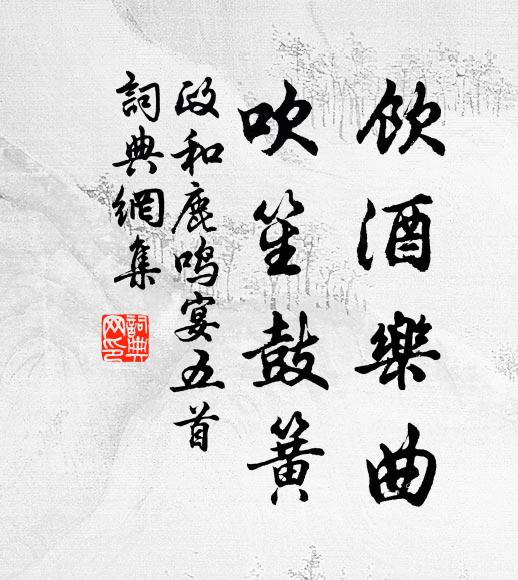 飲酒樂曲
吹笙鼓簧
政和鹿鳴宴五首
詞典網集
詞典網印